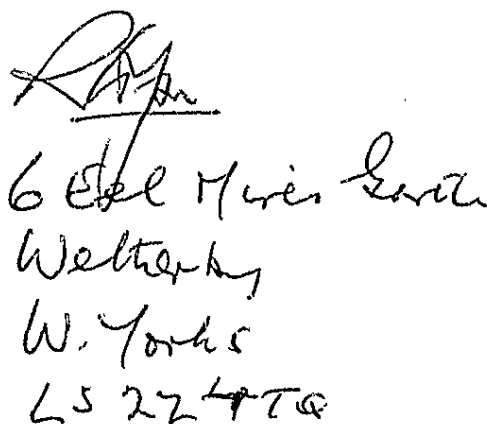 6 Eel Mires Garth
Wetherby
W. Yorks
LS 22 4TQ